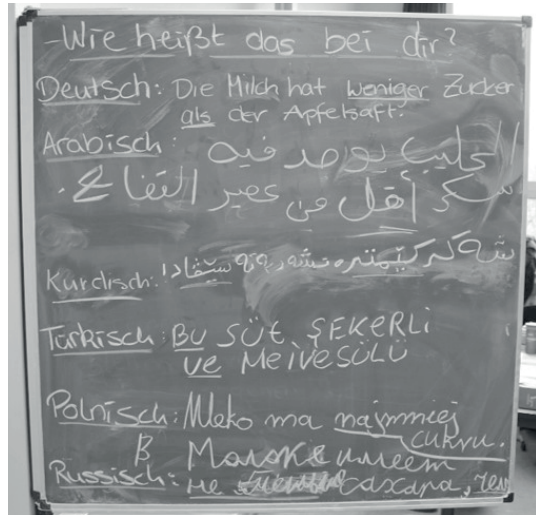 -Wie heißt das bei dir?
Deutsch: Die Milch hat weniger Zucker
als der Apfelsaft.
Arabisch: الحليب يوجد فيه
سكر أقل من عصير التفاح.
Kurdisch:
Türkisch: Bu SÜt ŞEKERLİ
ve MEİVESÜLÜ
Polnisch: Mleko ma najmniej
cukru.
В Малоке имеет
Russisch: не сахара, чем